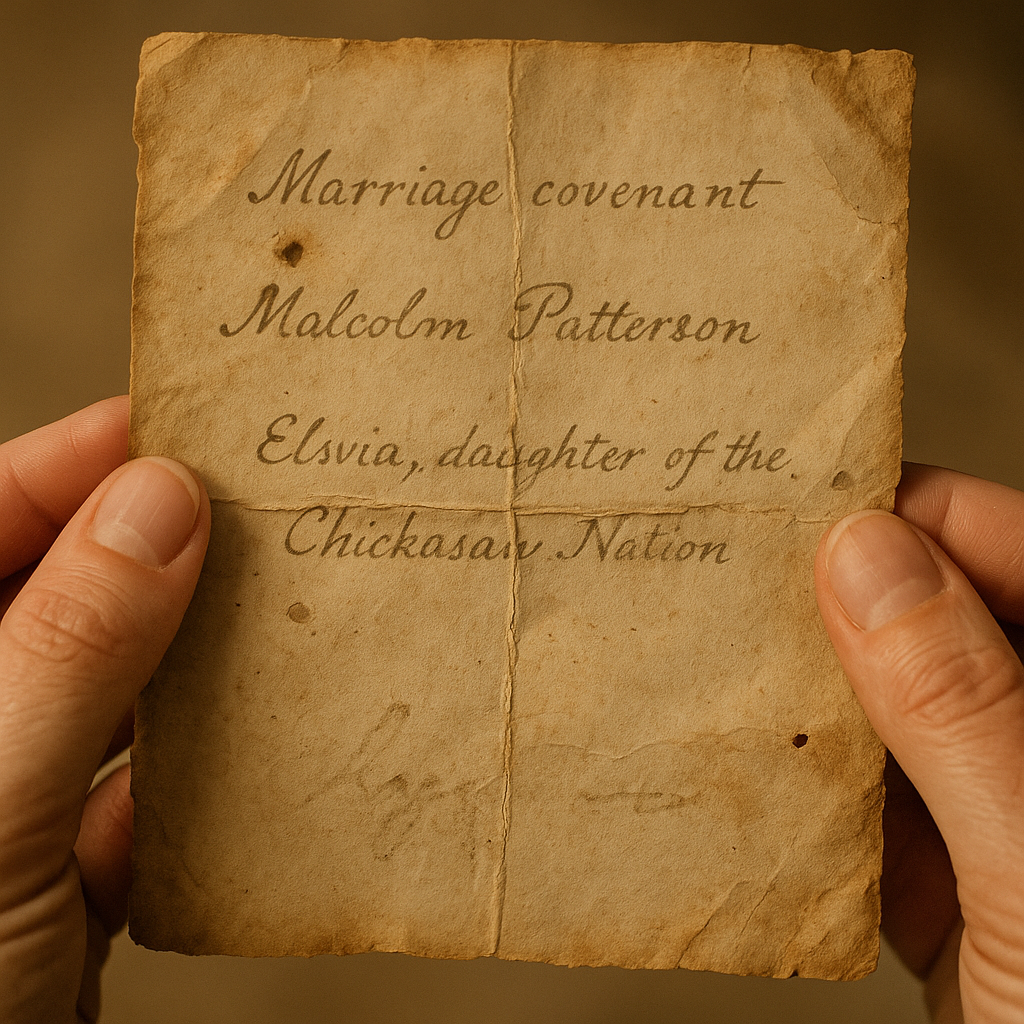 Marriage covenant
Malcolm Patterson
Elsvia, daughter of the
Chickasaw Nation